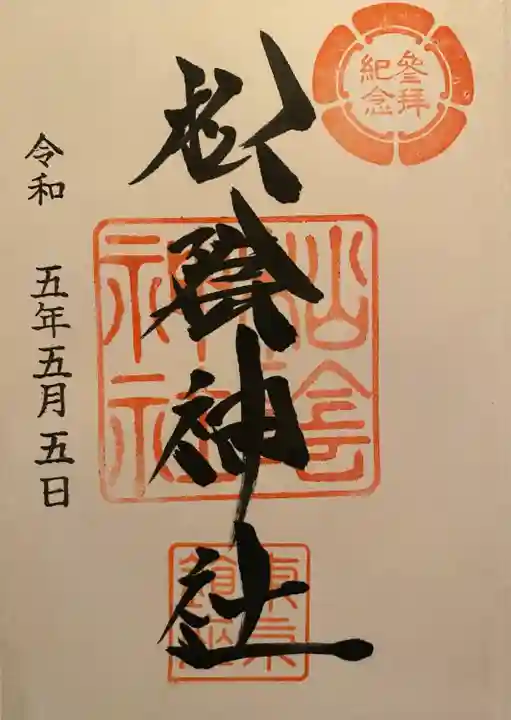 參拝
紀念
松陰神社
松陰
神社
東京
鎮座
令和 五年五月五日